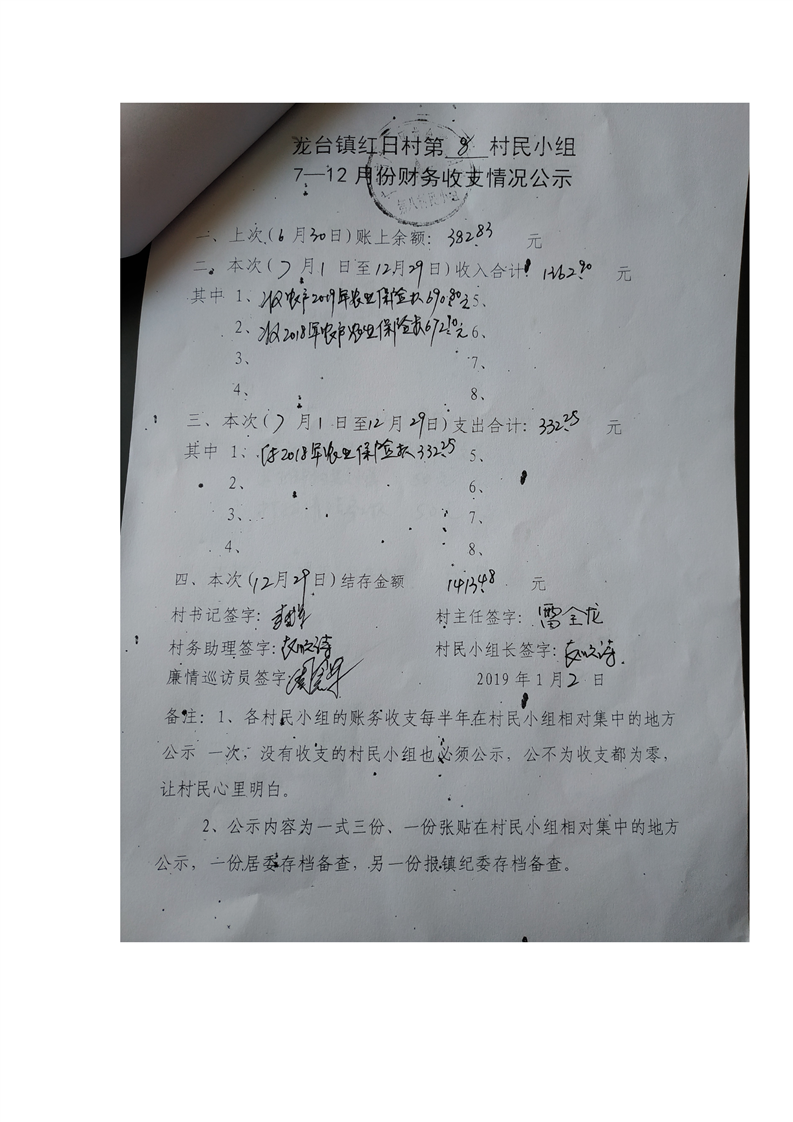 龙台镇红日村第 8 村民小组
7—12 月份财务收支情况公示
一、上次(6月30日)账上余额: 382.83 元
二、本次(7月1日至12月29日)收入合计: 1362.90 元
其中 1、收农户2019年农业保险款690.80元 5、
2、收2018年农户农业保险款672.10元 6、
3、 7、
4、 8、
三、本次(7月1日至12月29日)支出合计: 332.25 元
其中 1、付2018年农业保险款332.25 5、
2、 6、
3、 7、
4、 8、
四、本次(12月29日)结存金额 1413.48 元
村书记签字: 村主任签字: 雷全龙
村务助理签字: 村民小组长签字:
廉情巡访员签字: 2019年1月2日
备注: 1、各村民小组的账务收支每半年在村民小组相对集中的地方
公示 一次, 没有收支的村民小组也必须公示, 公不为收支都为零,
让村民心里明白。
2、公示内容为一式三份、一份张贴在村民小组相对集中的地方
公示, 一份居委存档备查, 另一份报镇纪委存档备查。